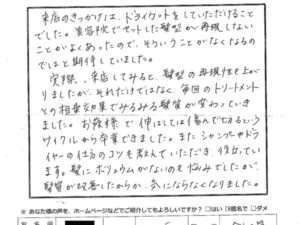 来店のきっかけは、ドライカットをしていただけること
でした。美容院でセットした髪型が再現しない
ことがよくあったので、そういうことがなくなるの
ではと期待していました。
実際、来店してみると、髪型の再現性も上が
りましたが、それだけではなく、毎回のトリートメント
との相乗効果でみるみる髪質が変わっていき
ました。お陰様で、伸ばしては傷んで切るという
サイクルから卒業できました。また シャンプーやドラ
イヤーの仕方のコツも教えていただき、役立ってい
ます。髪にボリュームがないのも悩みでしたが、
髪質が改善したからか、気にならなくなりました。
※ あなた様の声を、ホームページなどでご紹介してもよろしいですか? □はい □匿名で □ダメ